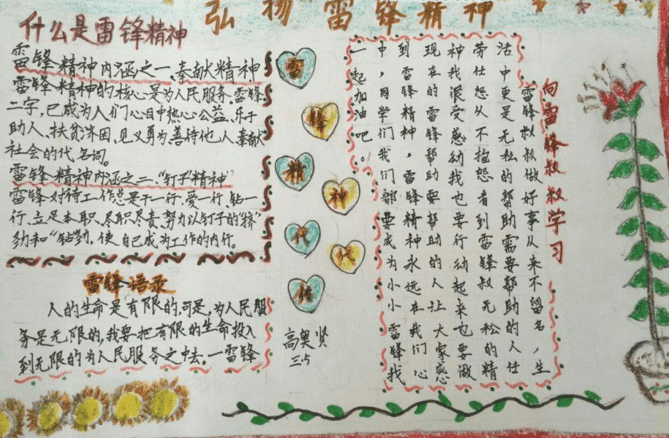 弘扬雷锋精神
什么是雷锋精神
雷锋精神内涵之一.奉献精神
雷锋精神的核心是为人民服务.雷锋
二字,已成为人们心目中热心公益、乐于
助人、扶贫济困、见义勇为、善待他人、奉献
社会的代名词。
雷锋精神内涵之二."钉子精神"
雷锋对待工作总是干一行、爱一行、钻一
行,立足本职、尽职尽责,努力以钉子的"挤"
劲和"钻劲",使自己成为工作的内行。
雷锋语录
人的生命是有限的,可是,为人民服
务是无限的,我要把有限的生命投入
到无限的为人民服务之中去.一雷锋
雷
锋
精
神
代
代
传
高奥贤
三5
向雷锋叔叔学习
雷锋叔叔做好事从来不留名,生
活中更是无私的帮助需要帮助的人任
劳任怨从不抱怨看到雷锋叔无松的精
神我很受感动我也要行动起来也要做
现在的雷锋帮助要帮助的人让大家感
到雷锋精神,雷锋精神永远在我们心
中,同学们我们都要成为小小雷锋我
一起加油吧。